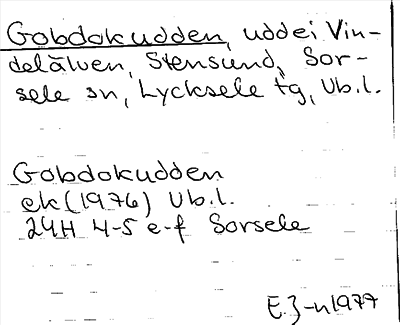 Gobdokudden, udde i Vin-
delälven, Stensund, Sor-
sele sn, Lycksele tg, Vb.l.
Gobdokudden
ek (1976) Vb.l.
24H 4-5 e-f Sorsele
E.J-n 1977